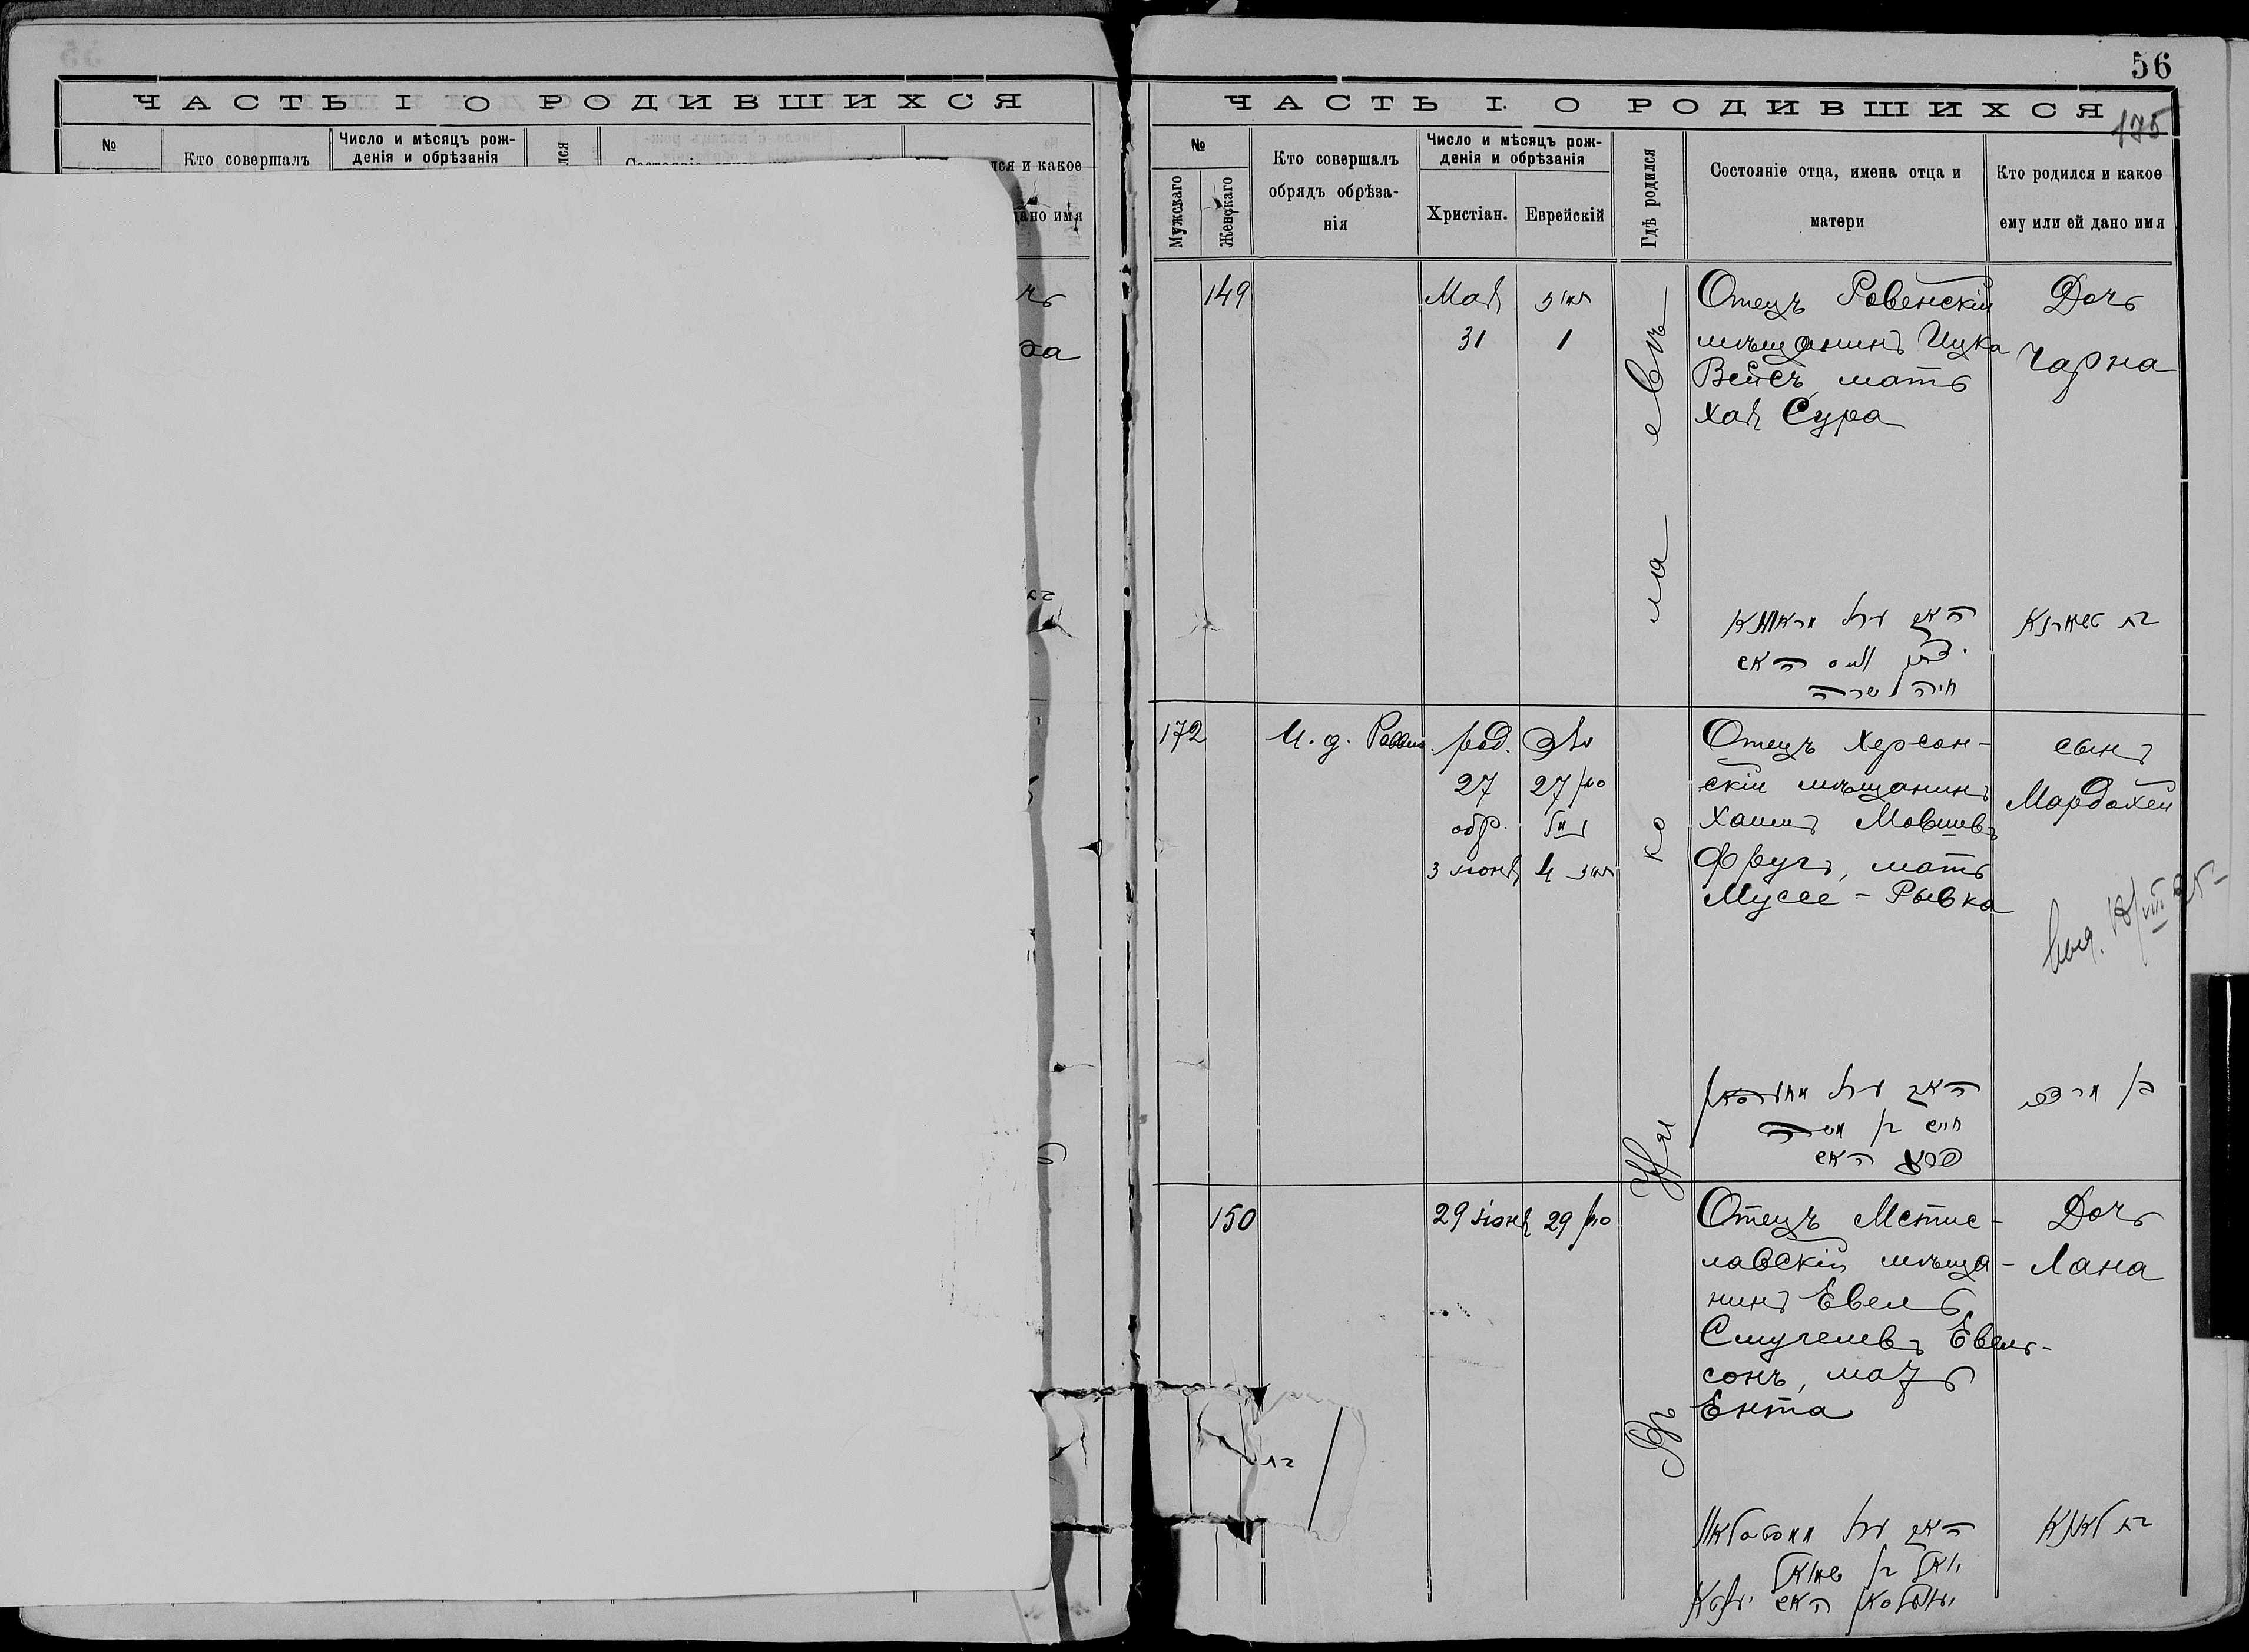 ЧАСТЬ I О РОДИВШИХСЯ
№
Кто совершалъ
Число и мѣсяцъ рож-
денія и обрѣзанія
лся
лся и какое
дано имя
ха
56
ЧАСТЬ I. О РОДИВШИХСЯ
175
№
Мужскаго
Женскаго
Кто совершалъ
обрядъ обрѣза-
нія
Число и мѣсяцъ рож-
денія и обрѣзанія
Христіан.
Еврейскій
Гдѣ родился
Состояніе отца, имена отца и
матери
Кто родился и какое
ему или ей дано имя
149
Мая
31
סיון
1
Отецъ Ровенскій
мѣщанинъ Ицка
Вейсъ, мать
Хая Сура
Дочь
Чарна
האב
האם
חיה שרה
בת טשארנא
Въ городѣ Николаевѣ
172
И. д. Раввин.
род.
27
обр.
3 іюня
27
4 סיון
Отецъ Херсон-
скій мѣщанинъ
Хаимъ Мовшевъ
Фругъ, мать
Муссе-Рывка
сынъ
Мардохей
האב
חיים בן משה
האם
בן מרדכי
150
29 іюня
29
Отецъ Мстис-
лавскій мѣща-
нинъ Евель
Смулевъ Евель-
сонъ, мать
Ента
Дочь
Лана
האב
האם
בת לאנא
בת